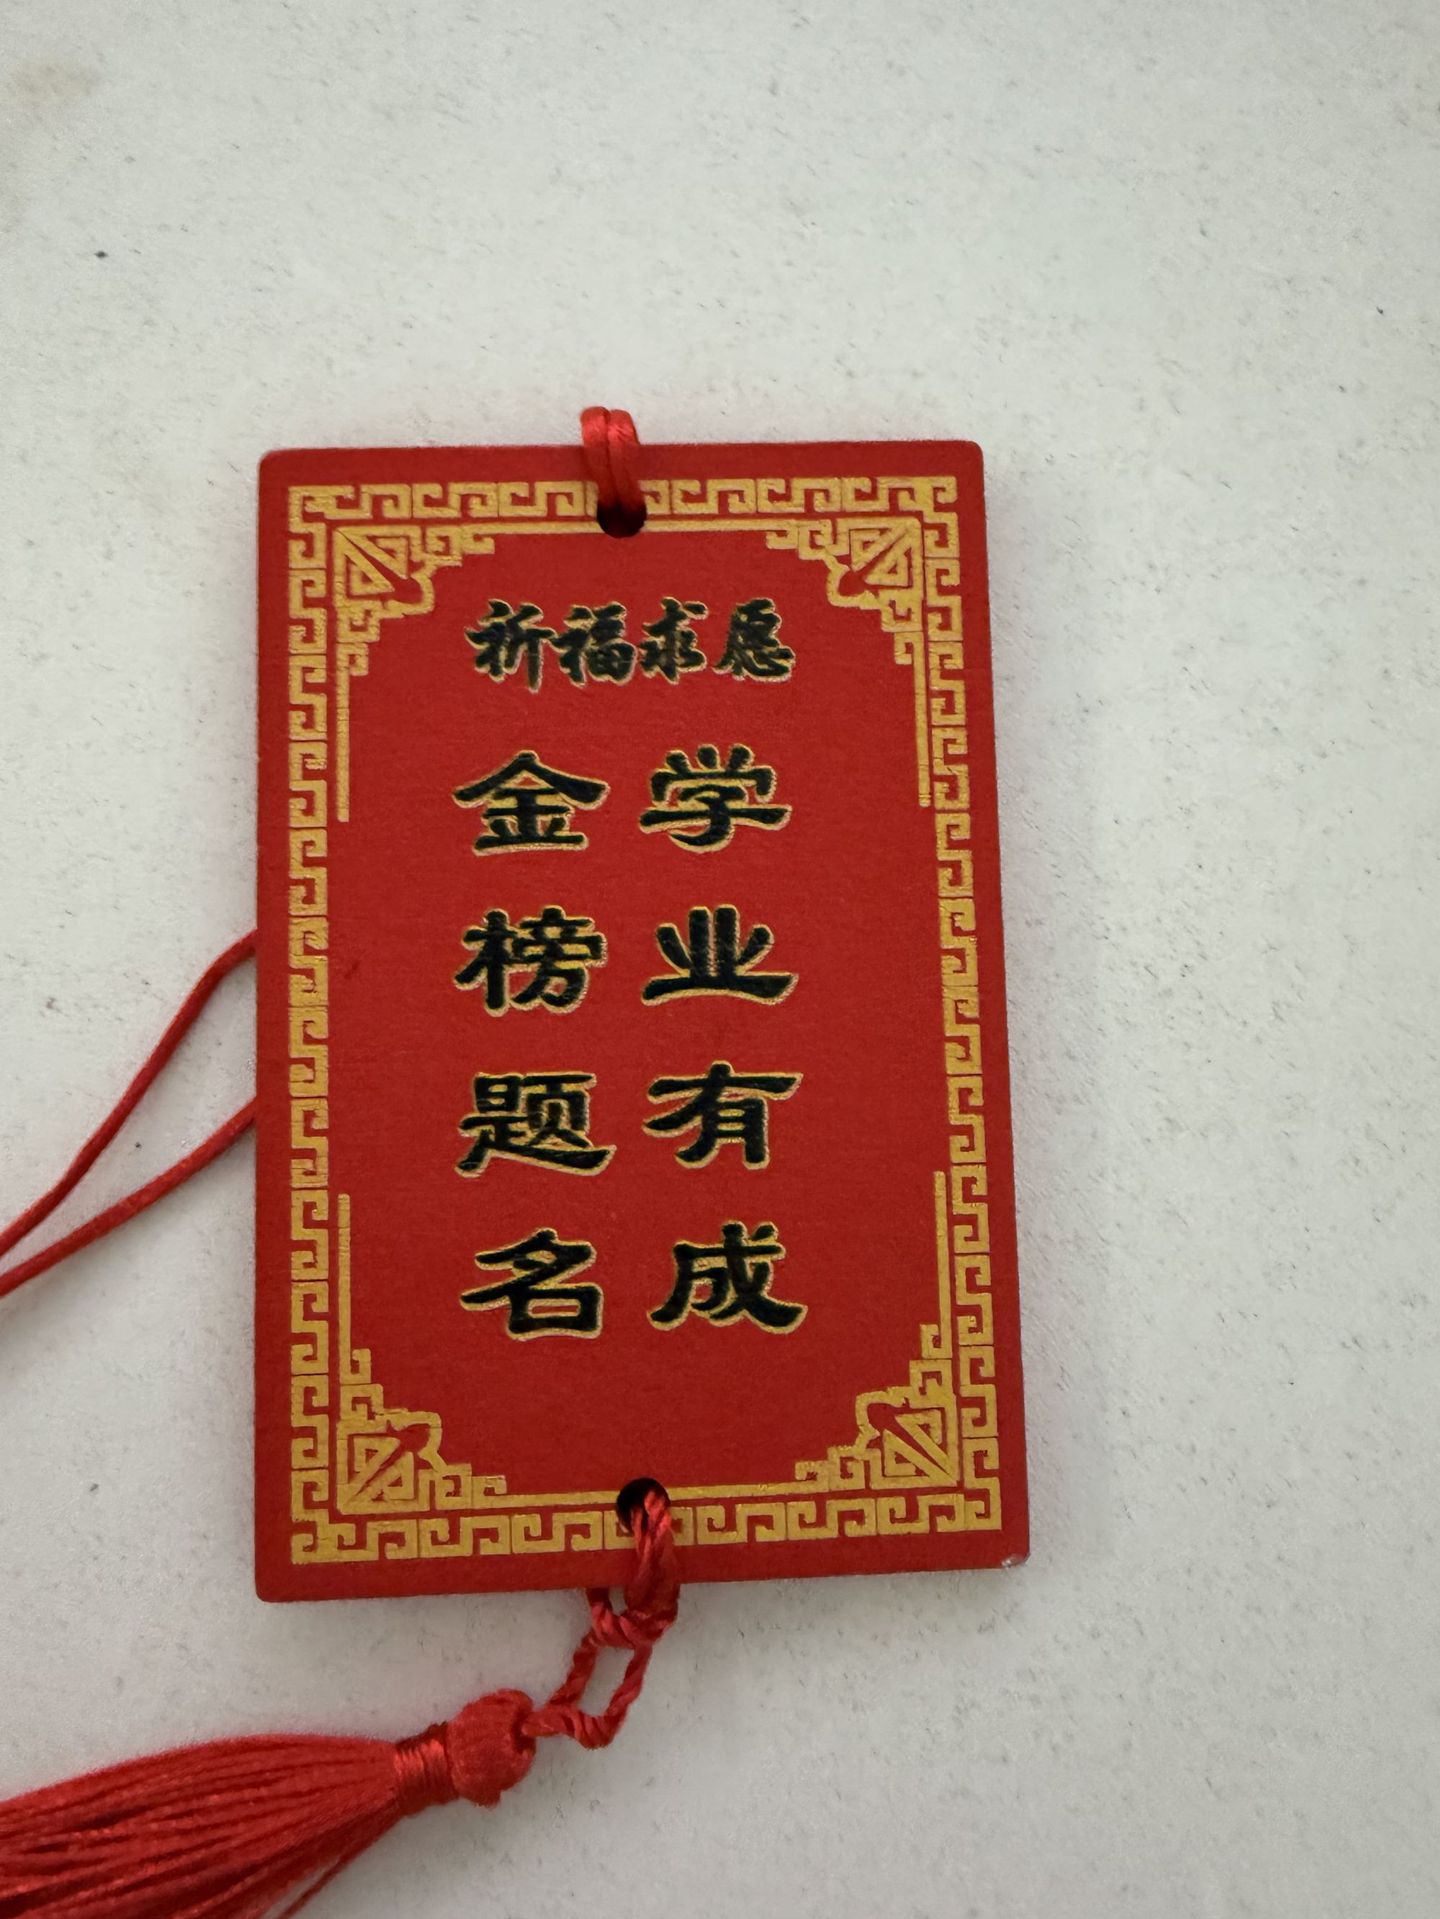 祈福求愿
学业有成
金榜题名